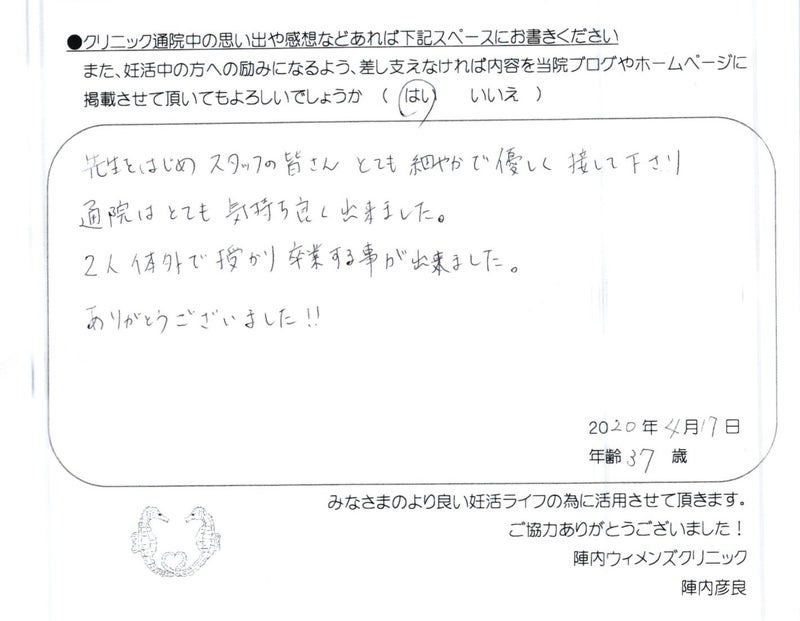 ●クリニック通院中の思い出や感想などあれば下記スペースにお書きください
また、妊活中の方への励みになるよう、差し支えなければ内容を当院ブログやホームページに
掲載させて頂いてもよろしいでしょうか （ はい いいえ ）
先生をはじめ スタッフの皆さん とても 細やかで優しく 接して下さり
通院はとても 気持ち良く出来ました。
2人 体外で授かり卒業する事が出来ました。
ありがとうございました!!
2020年4月17日
年齢37歳
みなさまのより良い妊活ライフの為に活用させて頂きます。
ご協力ありがとうございました！
陣内ウィメンズクリニック
陣内彦良